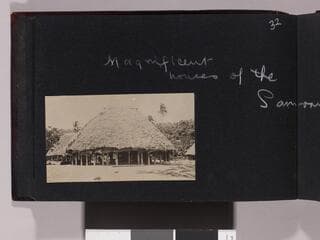 32
Magnificent
houses of the